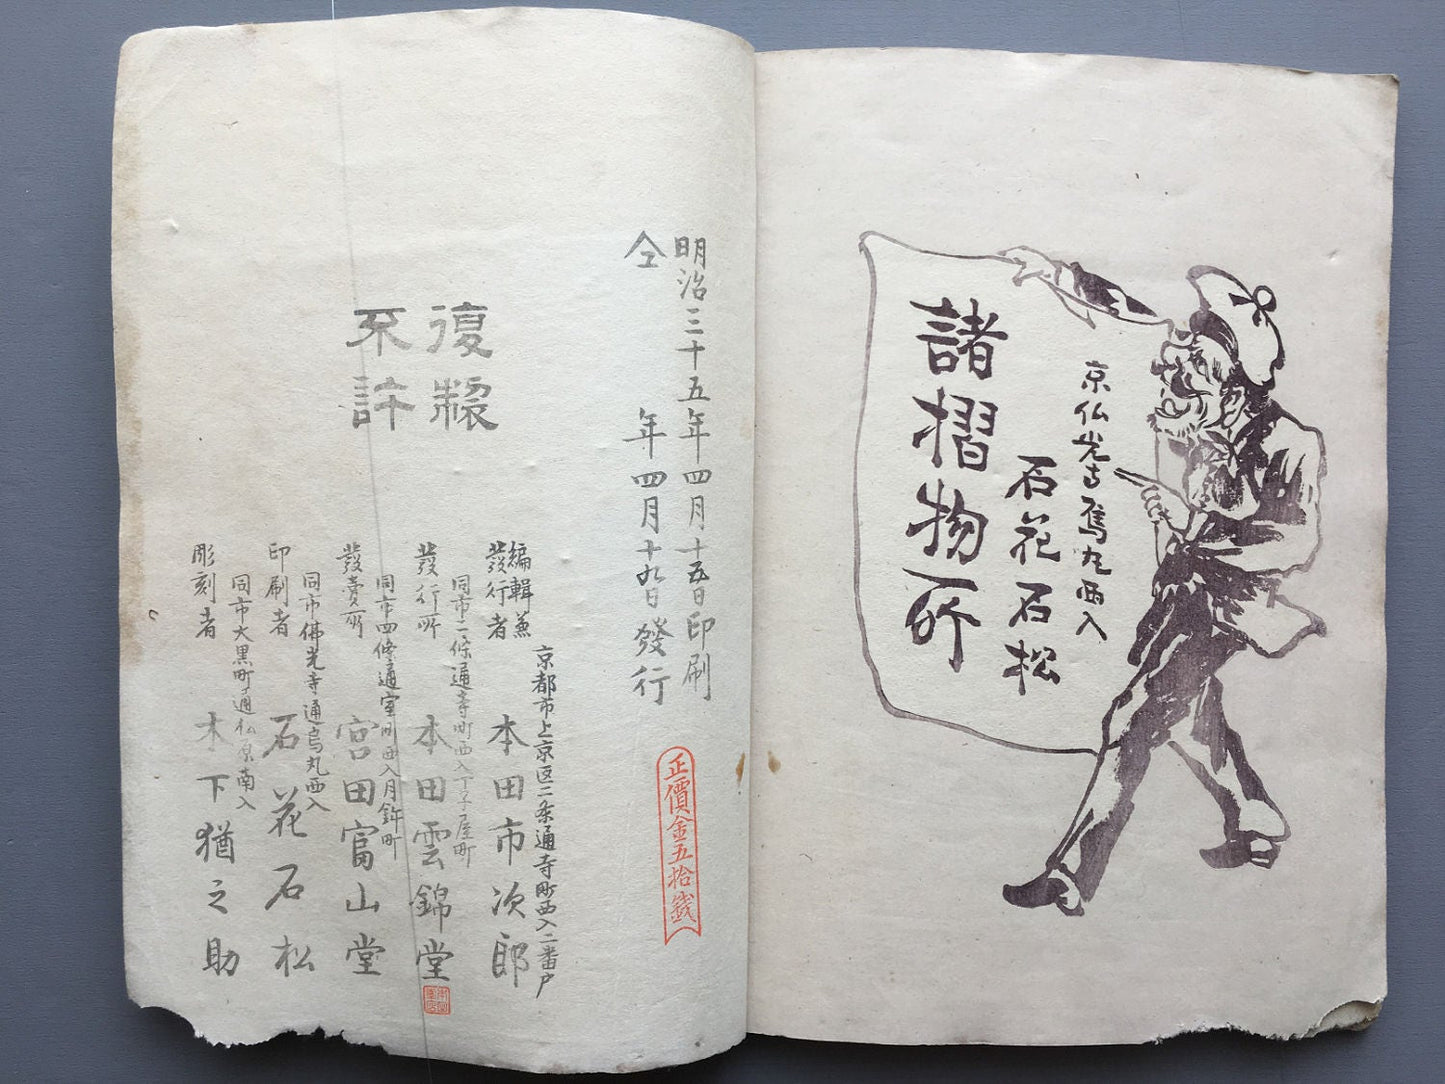 諸摺物所
京仏光寺烏丸西入
石花石松
明治三十五年四月十五日印刷
仝　年四月十九日發行
正價金五拾錢
復製
不許
京都市上京区二条通寺町西入二番戸
編輯兼
發行者
本田市次郎
同市二條通寺町西入丁子屋町
發行所
本田雲錦堂
同市四條通室町西入月鉾町
發賣所
宮田富山堂
同市佛光寺通烏丸西入
印刷者
石花石松
同市大黒町通仏原南入
彫刻者
木下猶之助